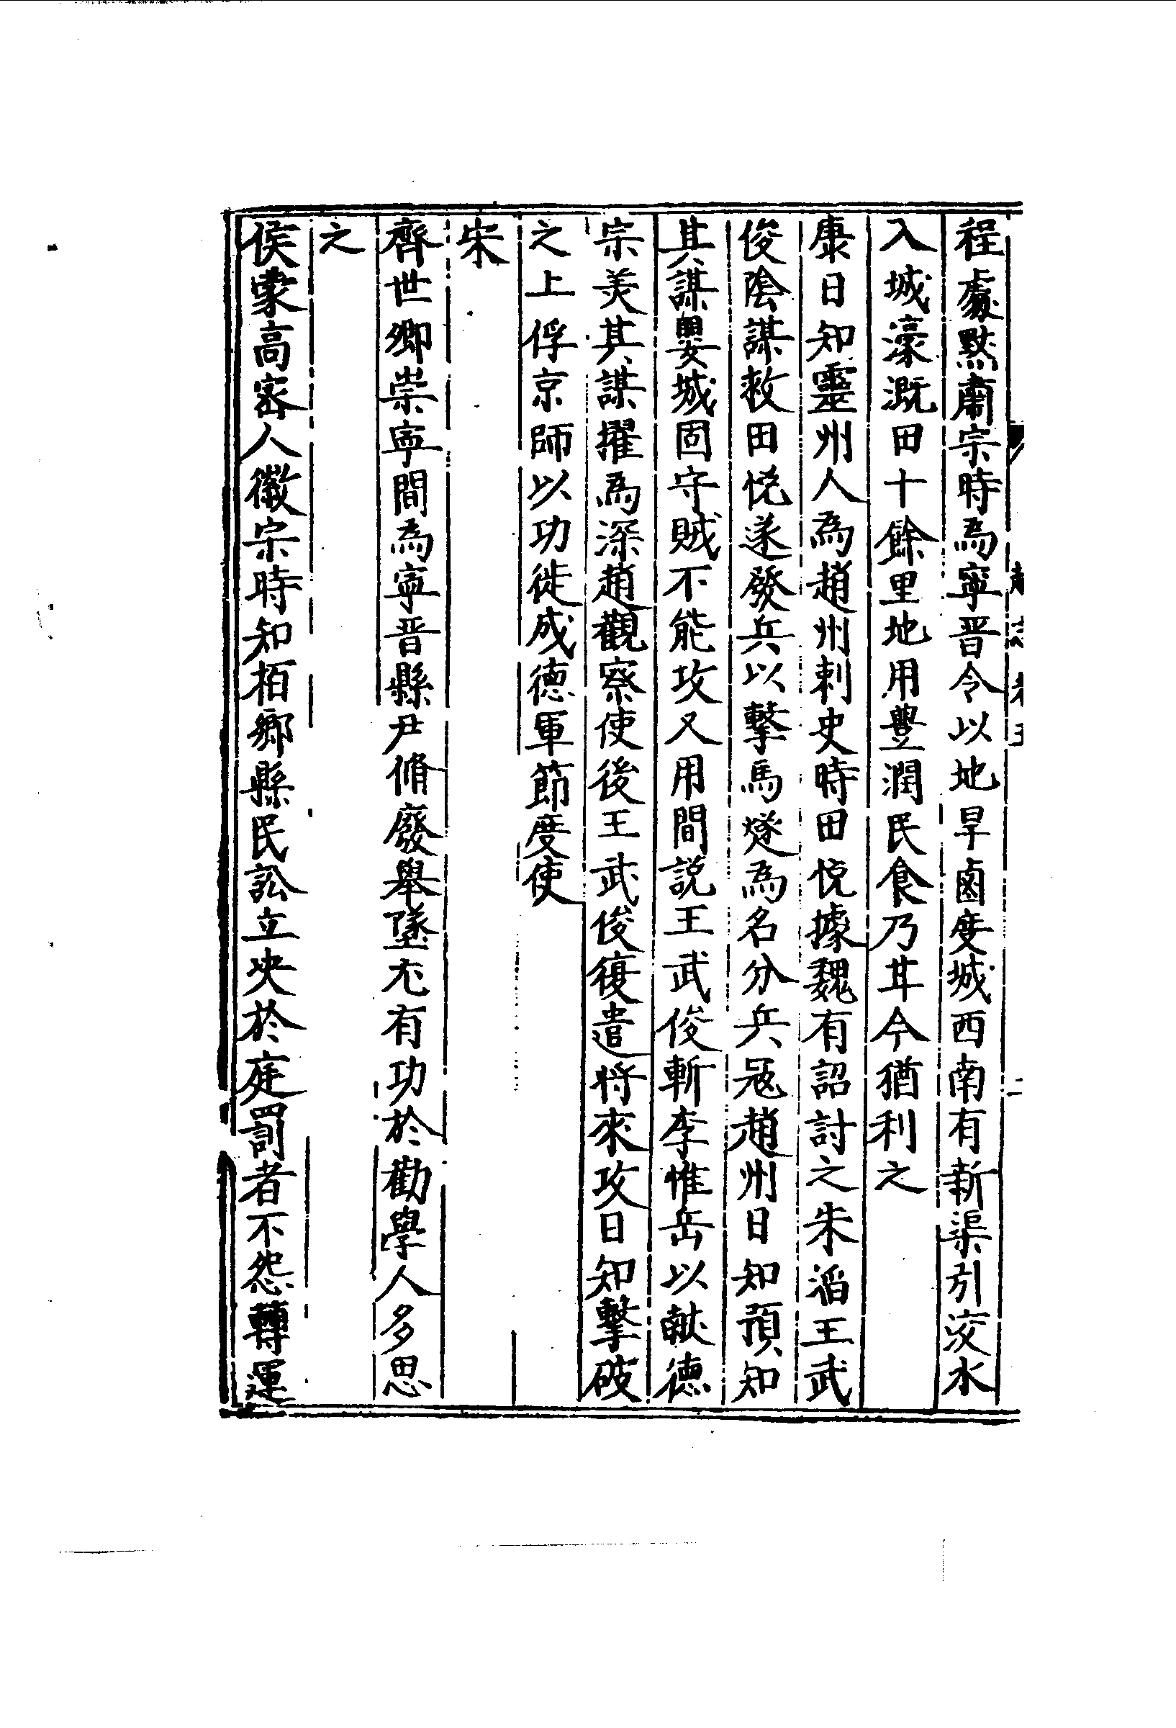 程處黙肅宗時為寧晋令以地旱鹵度城西南有新渠引洨水
入城濠溉田十餘里地用豊潤民食乃甘今猶利之
康日知靈州人為趙州刺史時田悅據魏有詔討之朱滔王武
俊陰謀救田悅遂發兵以擊馬燧為名分兵冦趙州日知預知
其謀嬰城固守賊不能攻又用間説王武俊斬李惟岳以献德
宗美其謀擢為深趙觀察使後王武俊復遣将來攻日知擊破
之上俘京師以功徙成德軍節度使
宋
齊世卿崇寧間為寧晋縣尹脩廢舉墜尤有功於勸學人多思
之
侯蒙高密人徽宗時知栢鄉縣民訟立决於庭罰者不怨轉運